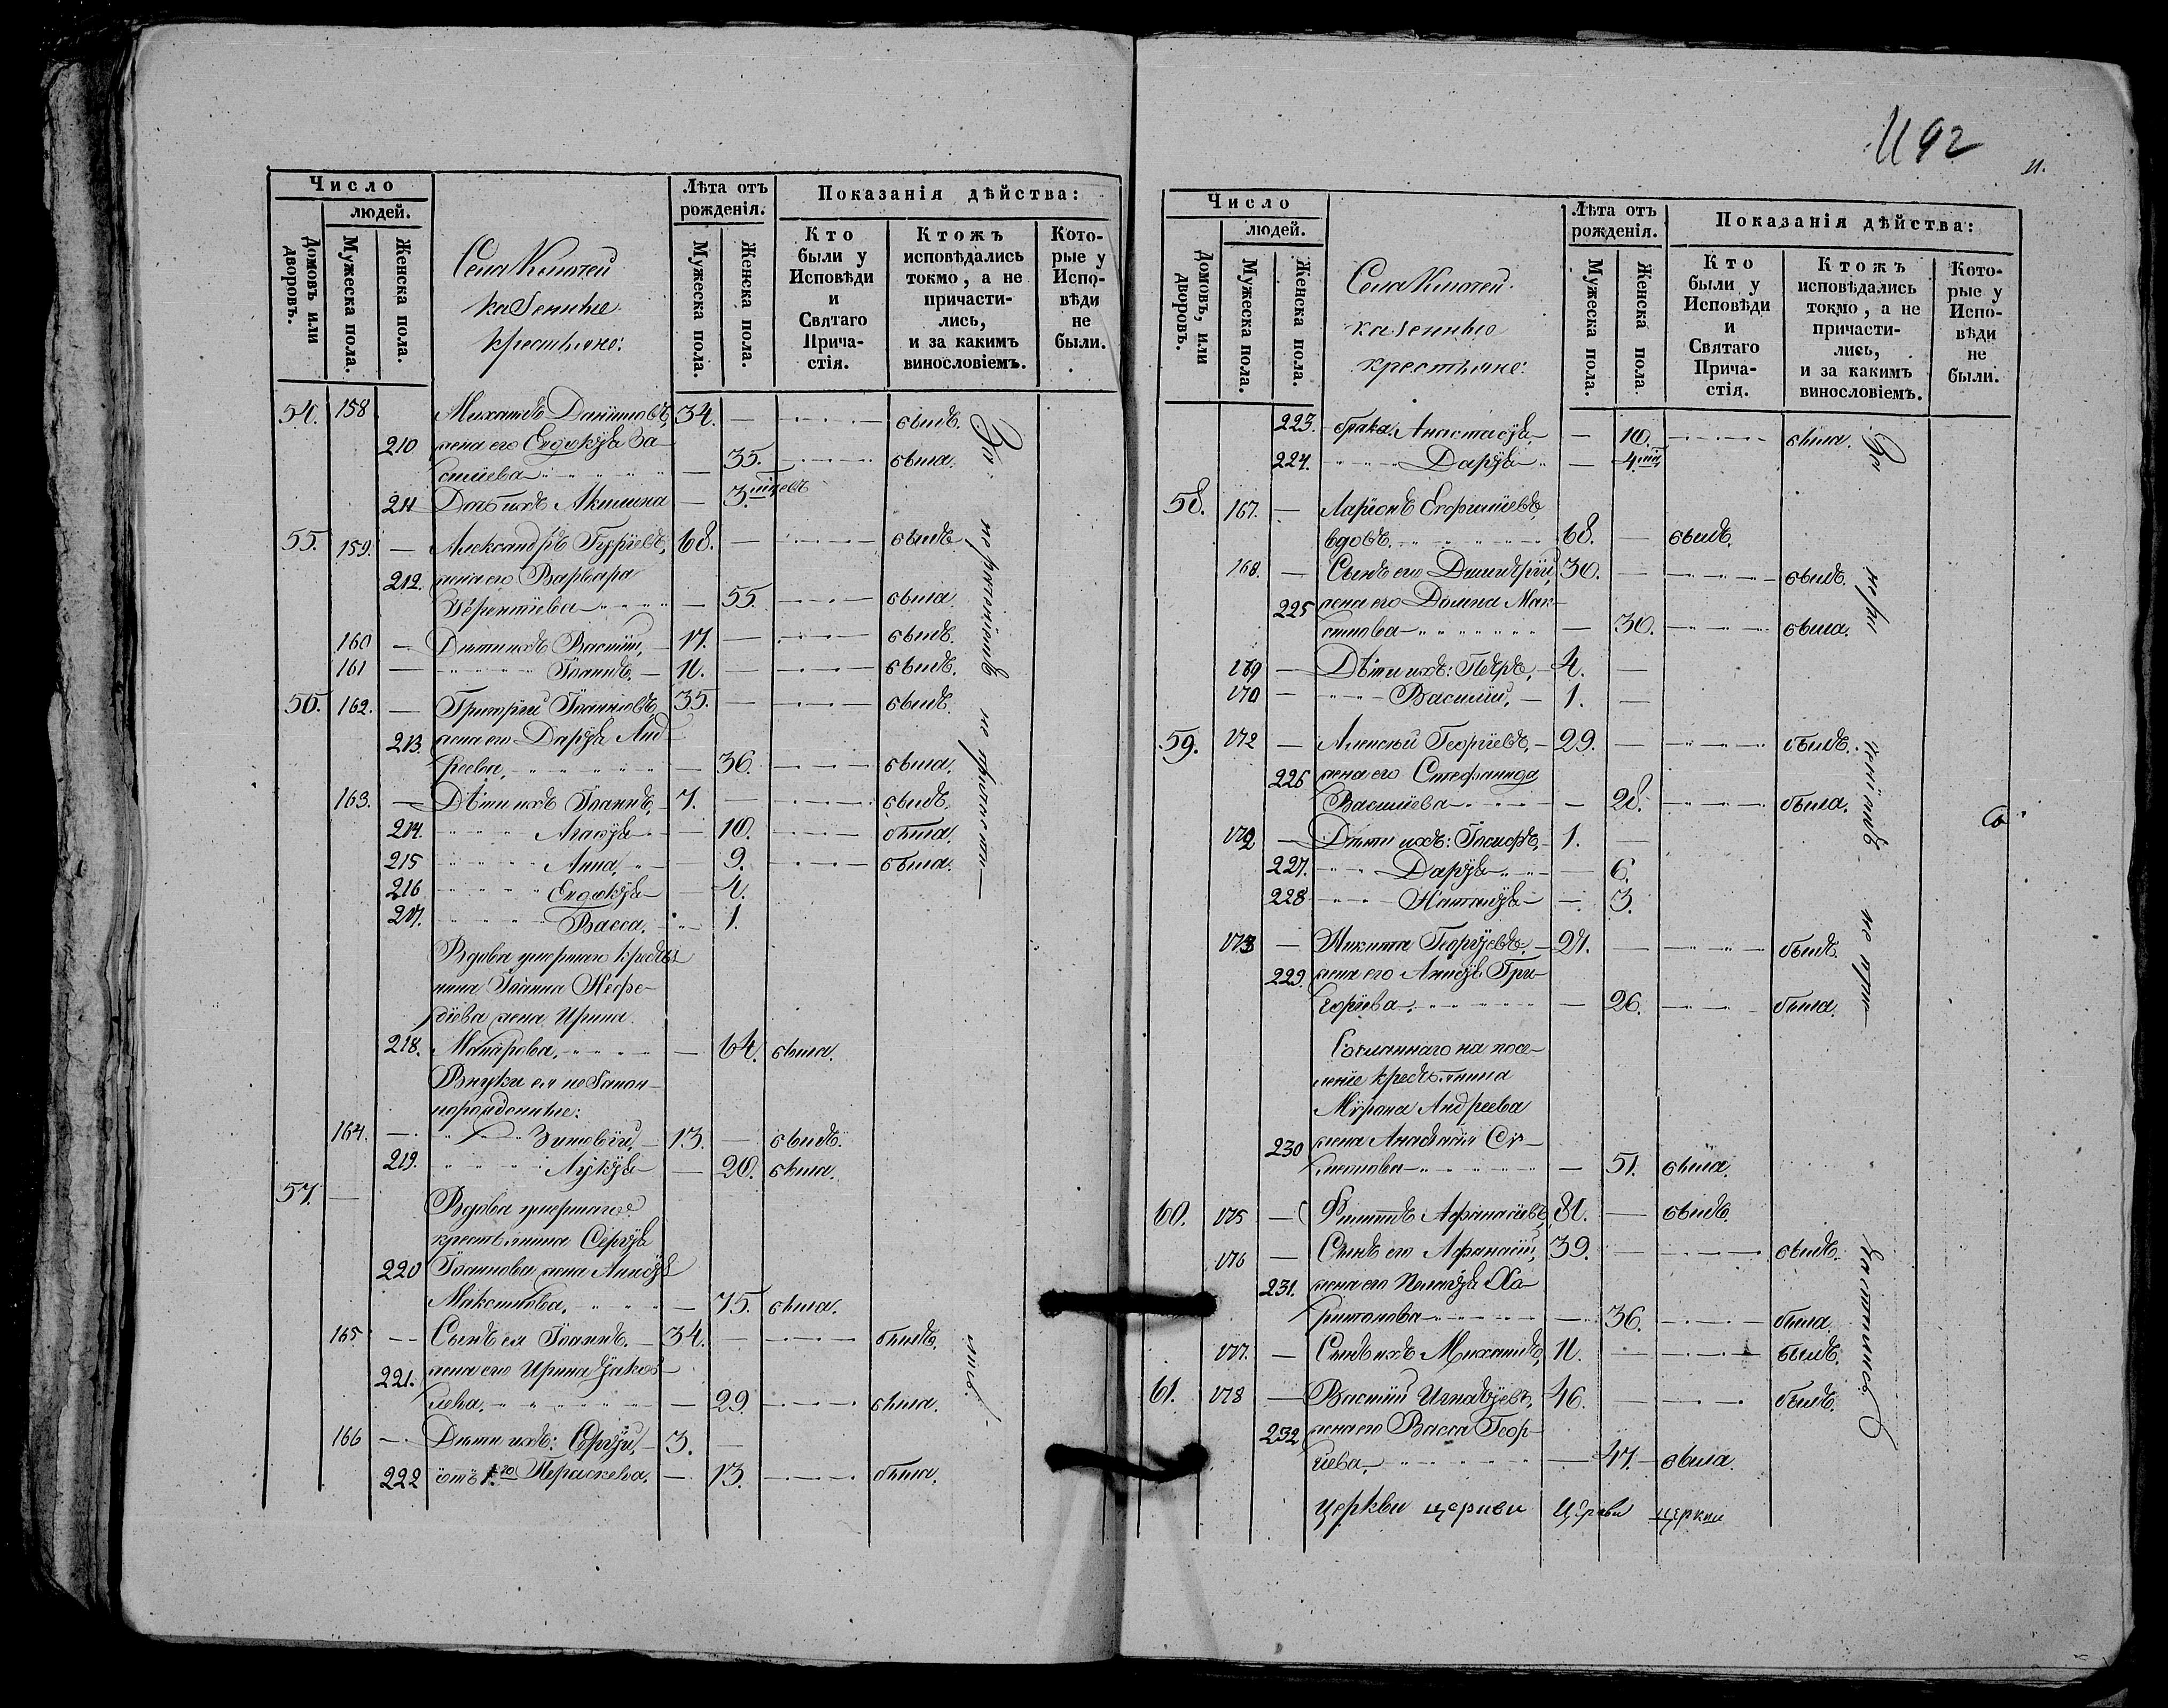 Число
людей.
Домовъ или дворовъ.
Мужеска пола.
Женска пола.
Села Ключей
казенные
крестьяне:
Лѣта отъ
рожденія.
Мужеска пола.
Женска пола.
Показанія дѣйства:
Кто
были у
Исповѣди
и
Святаго
Прича-
стія.
Ктожъ
исповѣдались
токмо, а не
причасти-
лись,
и за какимъ
винословіемъ.
Кото-
рые у
Испо-
вѣди
не
были.
54. 158 Михаилъ Даниловъ, 34. — былъ.
210 жена его Евдокія Ва-
силиева — 35. была.
211 Дочь ихъ Акилина — 3. мцевъ
55. 159. — Александръ Гурiевъ, 68. — былъ.
212. жена его Варвара
Терентiева — 55. была.
160 — Дѣти ихъ Василiй, 17. — былъ.
161 — Іоаннъ. — 11. — былъ.
56. 162. — Григорiй Іоанновъ 35. — былъ.
213. жена его Дарiя Анд-
реева, — 36. была.
163. — Дѣти ихъ Іоаннъ, 7. — былъ.
214. Агафiя — 10. была.
215 Анна, — 9. была.
216 Евдокiя — 4.
217. Васса, — 1.
Вдова умершаго крестья
нина Іоанна Нефе-
дiева жена Ирина
218. Макарова, — 64. была.
Внуки ея незакон-
норожденные:
164. — Зиновiй, 13. — былъ.
219. Лукiя — 20. была.
57. — Вдова умершаго
крестьянина Сергiя
220 Іоаннова жена Анисiя
Максимова. — 75. была.
165. — Сынъ ея Іоаннъ. — 34. — былъ.
221. жена его Ирина Iаков-
лева. — 29. была.
166 — Дѣти ихъ: Сергiй, 3. —
222 отъ 1.го Параскева. — 13. была.
За нераченiемъ не причасти—
лись.
1192
11.
Число
людей.
Домовъ, или дворовъ.
Мужеска пола.
Женска пола.
Села Ключей
казенные
крестьяне:
Лѣта отъ
рожденія.
Мужеска пола.
Женска пола
Показанія дѣйства:
Кто
были у
Исповѣди
и
Святаго
Прича-
стія.
Ктожъ
исповѣдались
токмо, а не
причасти-
лись,
и за какимъ
винословіемъ.
Кото-
рые у
Испо-
вѣди
не
были.
223. брака: Анастасiя — 10. была.
224. Дарiя — 4 мц
58. 167. — Ларiонъ
вдовъ. 68. — былъ.
168. — Сынъ его Димитрiй, 30. — былъ.
225 жена его Домна Мак-
симова — 30. была.
169 — Дѣти ихъ: Петръ, 4. —
170 — Василий, — 1. —
59. 172 — Алексiй Георгiевъ, — 29. — былъ.
226 жена его Стефанида
Василиева — 28. была.
172 — Дѣти ихъ: Іосифъ, — 1. —
227. Дарiя — 6.
228 Наталiя — 3.
173 — Никита Георгiевъ, — 27. — былъ.
229. жена его Анисiя Гри-
горiева. — 26. была.
Сосланнаго на посе-
ленiе крестьянина
Мѵрона Андреева
230 жена Анастасiя Сѵ-
меонова — 51. была.
60. 175 — Филиппъ Афанасiевъ, 81. — былъ.
176 — Сынъ его Афанасiй, 39. — былъ.
231. жена его Пелагiя Ха-
ритонова — 36. была.
177. — Сынъ ихъ Михаилъ, 11. — былъ.
61. 178 — Василiй Игнатiевъ, 46. — былъ.
232 жена его Васса Геор-
гiева, — 47. — была.
За нера ченiемъ не при—
частились
Церкви церкви Церкви церкви